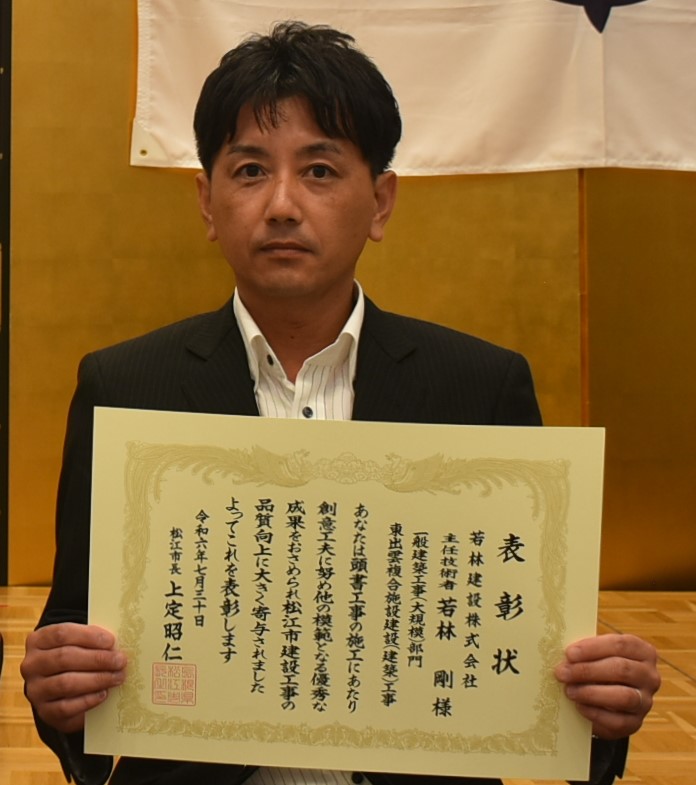 表彰状
若林建設株式会社
主任技術者 若林 剛 様
一般建築工事(大規模)部門
東出雲複合施設建設(建築)工事
あなたは頭書工事の施工にあたり
創意工夫に努め他の模範となる優秀な
成果をおさめられ松江市建設工事の
品質向上に大きく寄与されました
よってこれを表彰します
令和六年七月三十日
松江市長 上定昭仁